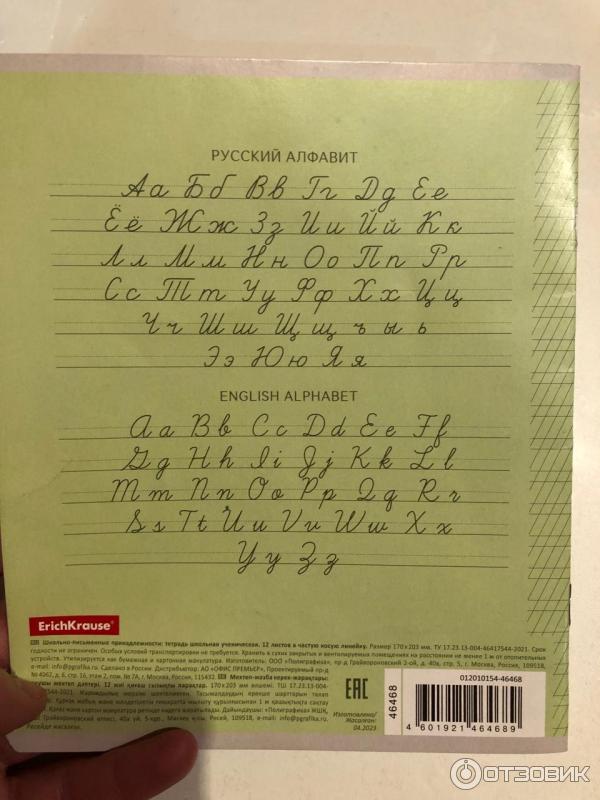 РУССКИЙ АЛФАВИТ
Аа Бб Вв Гг Дд Ее
Ёё Жж Зз Ии Йй Кк
Лл Мм Нн Оо Пп Рр
Сс Тт Уу Фф Хх Цц
Чч Шш Щщ ъ ы ь
Ээ Юю Яя
ENGLISH ALPHABET
Aa Bb Cc Dd Ee Ff
Gg Hh Ii Jj Kk Ll
Mm Nn Oo Pp Qq Rr
Ss Tt Uu Vv Ww Xx
Yy Zz
ErichKrause
Школьно-письменные принадлежности: тетрадь школьная ученическая, 12 листов в частую косую линейку. Размер 170×203 мм. ТУ 17.23.13-004-46417544-2021. Срок
годности не ограничен. Особых условий транспортировки не требуется. Хранить в сухих закрытых и вентилируемых помещениях на расстоянии не менее 1 м от отопительных
устройств. Утилизируется как бумажная и картонная макулатура. Изготовитель: ООО «Полиграфика», пр-д Грайвороновский 2-ой, д. 40а, стр. 5, г. Москва, Россия, 109518,
e-mail: info@pgrafika.ru. Сделано в России. Дистрибьютор: АО «ОФИС ПРЕМЬЕР», Проектируемый пр-д
№ 4062, д. 6, стр. 16, этаж 2, пом. № 7А, г. Москва, Россия, 115432. Мектеп-жазба керек-жарақтары:
оқушы мектеп дәптері, 12 жиі қиғаш сызықты парақтар. 170×203 мм өлшемі. ТШ 17.23.13-004-
EAC
46468
Изготовлено/
Жасалған:
04.2023
012010154-46468
4 601921 464689
ОТЗОВИК